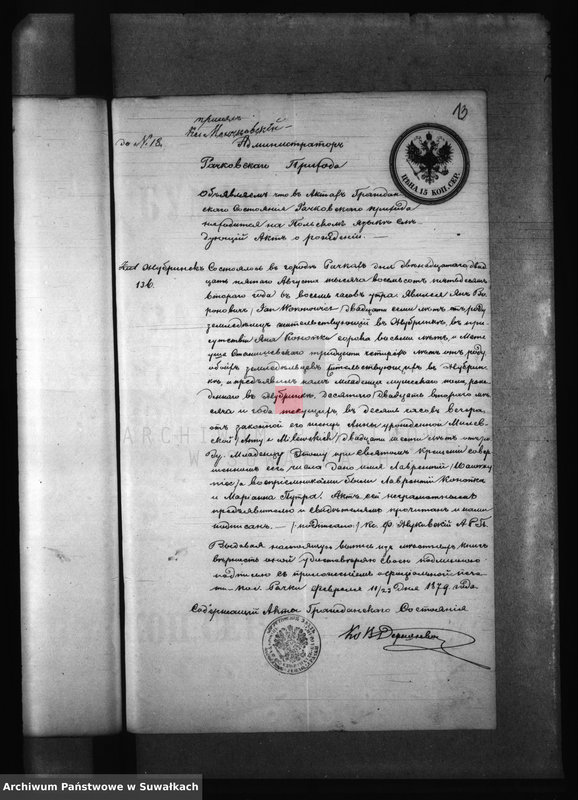 13
до № 18.
Администраторъ
Рачковскаго Прихода
ЦѢНА 15 КОП. СЕР.
Объявляемъ что въ Актахъ Граждан-
скаго Состоянія Рачковскаго прихода
находится на Польскомъ языкѣ слѣ-
дующій Актъ о рожденіи —
136.
Состоялось въ городѣ Рачкахъ дня двѣнадцатаго двад
цать пятаго Августа тысяча восемьсотъ пятьдесятъ
втораго года въ восемь часовъ утра. Явился Янъ
/Jan Woronowicz/ двадцати семи лѣтъ отъ роду
земледѣлецъ жительствующій въ въ при-
сутствіи Яна сорока восьми лѣтъ, и Мате
уша тридцати четырехъ лѣтъ отъ роду
обоихъ земледѣльцевъ жительствующихъ въ
и предъявилъ намъ младенца мужескаго пола, рож
деннаго въ десятаго /двадцать втораго/ мѣ
сяца и года текущихъ, въ десять часовъ вечера,
отъ законной его жены Анны урожденной Милев-
ской /Anny z Milewskich/ двадцати шести лѣтъ отъ ро-
ду. Младенцу этому при святомъ крещеніи совер
шенномъ сего числа дано имя Лаврентій /Wawrzy
niec/ а воспріемниками были Лаврентій
и Маріанна Путра. Актъ сей неграмотнымъ
предъявителю и свидѣтелямъ прочитанъ и нами
подписанъ. — /подписалъ/ Кс. Ф. Жуковскій А. Р. П.
Выдавая настоящую выпись изъ мѣстныхъ книгъ
вѣрность оной удостовѣряю своею подписью
съ приложеніемъ оффиціальной печа-
ти. — пос. Рачки Февраля 11/23 дня 1879 года.
Содержащій Акты Гражданскаго Состоянія
Archiwum Państwowe w Suwałkach